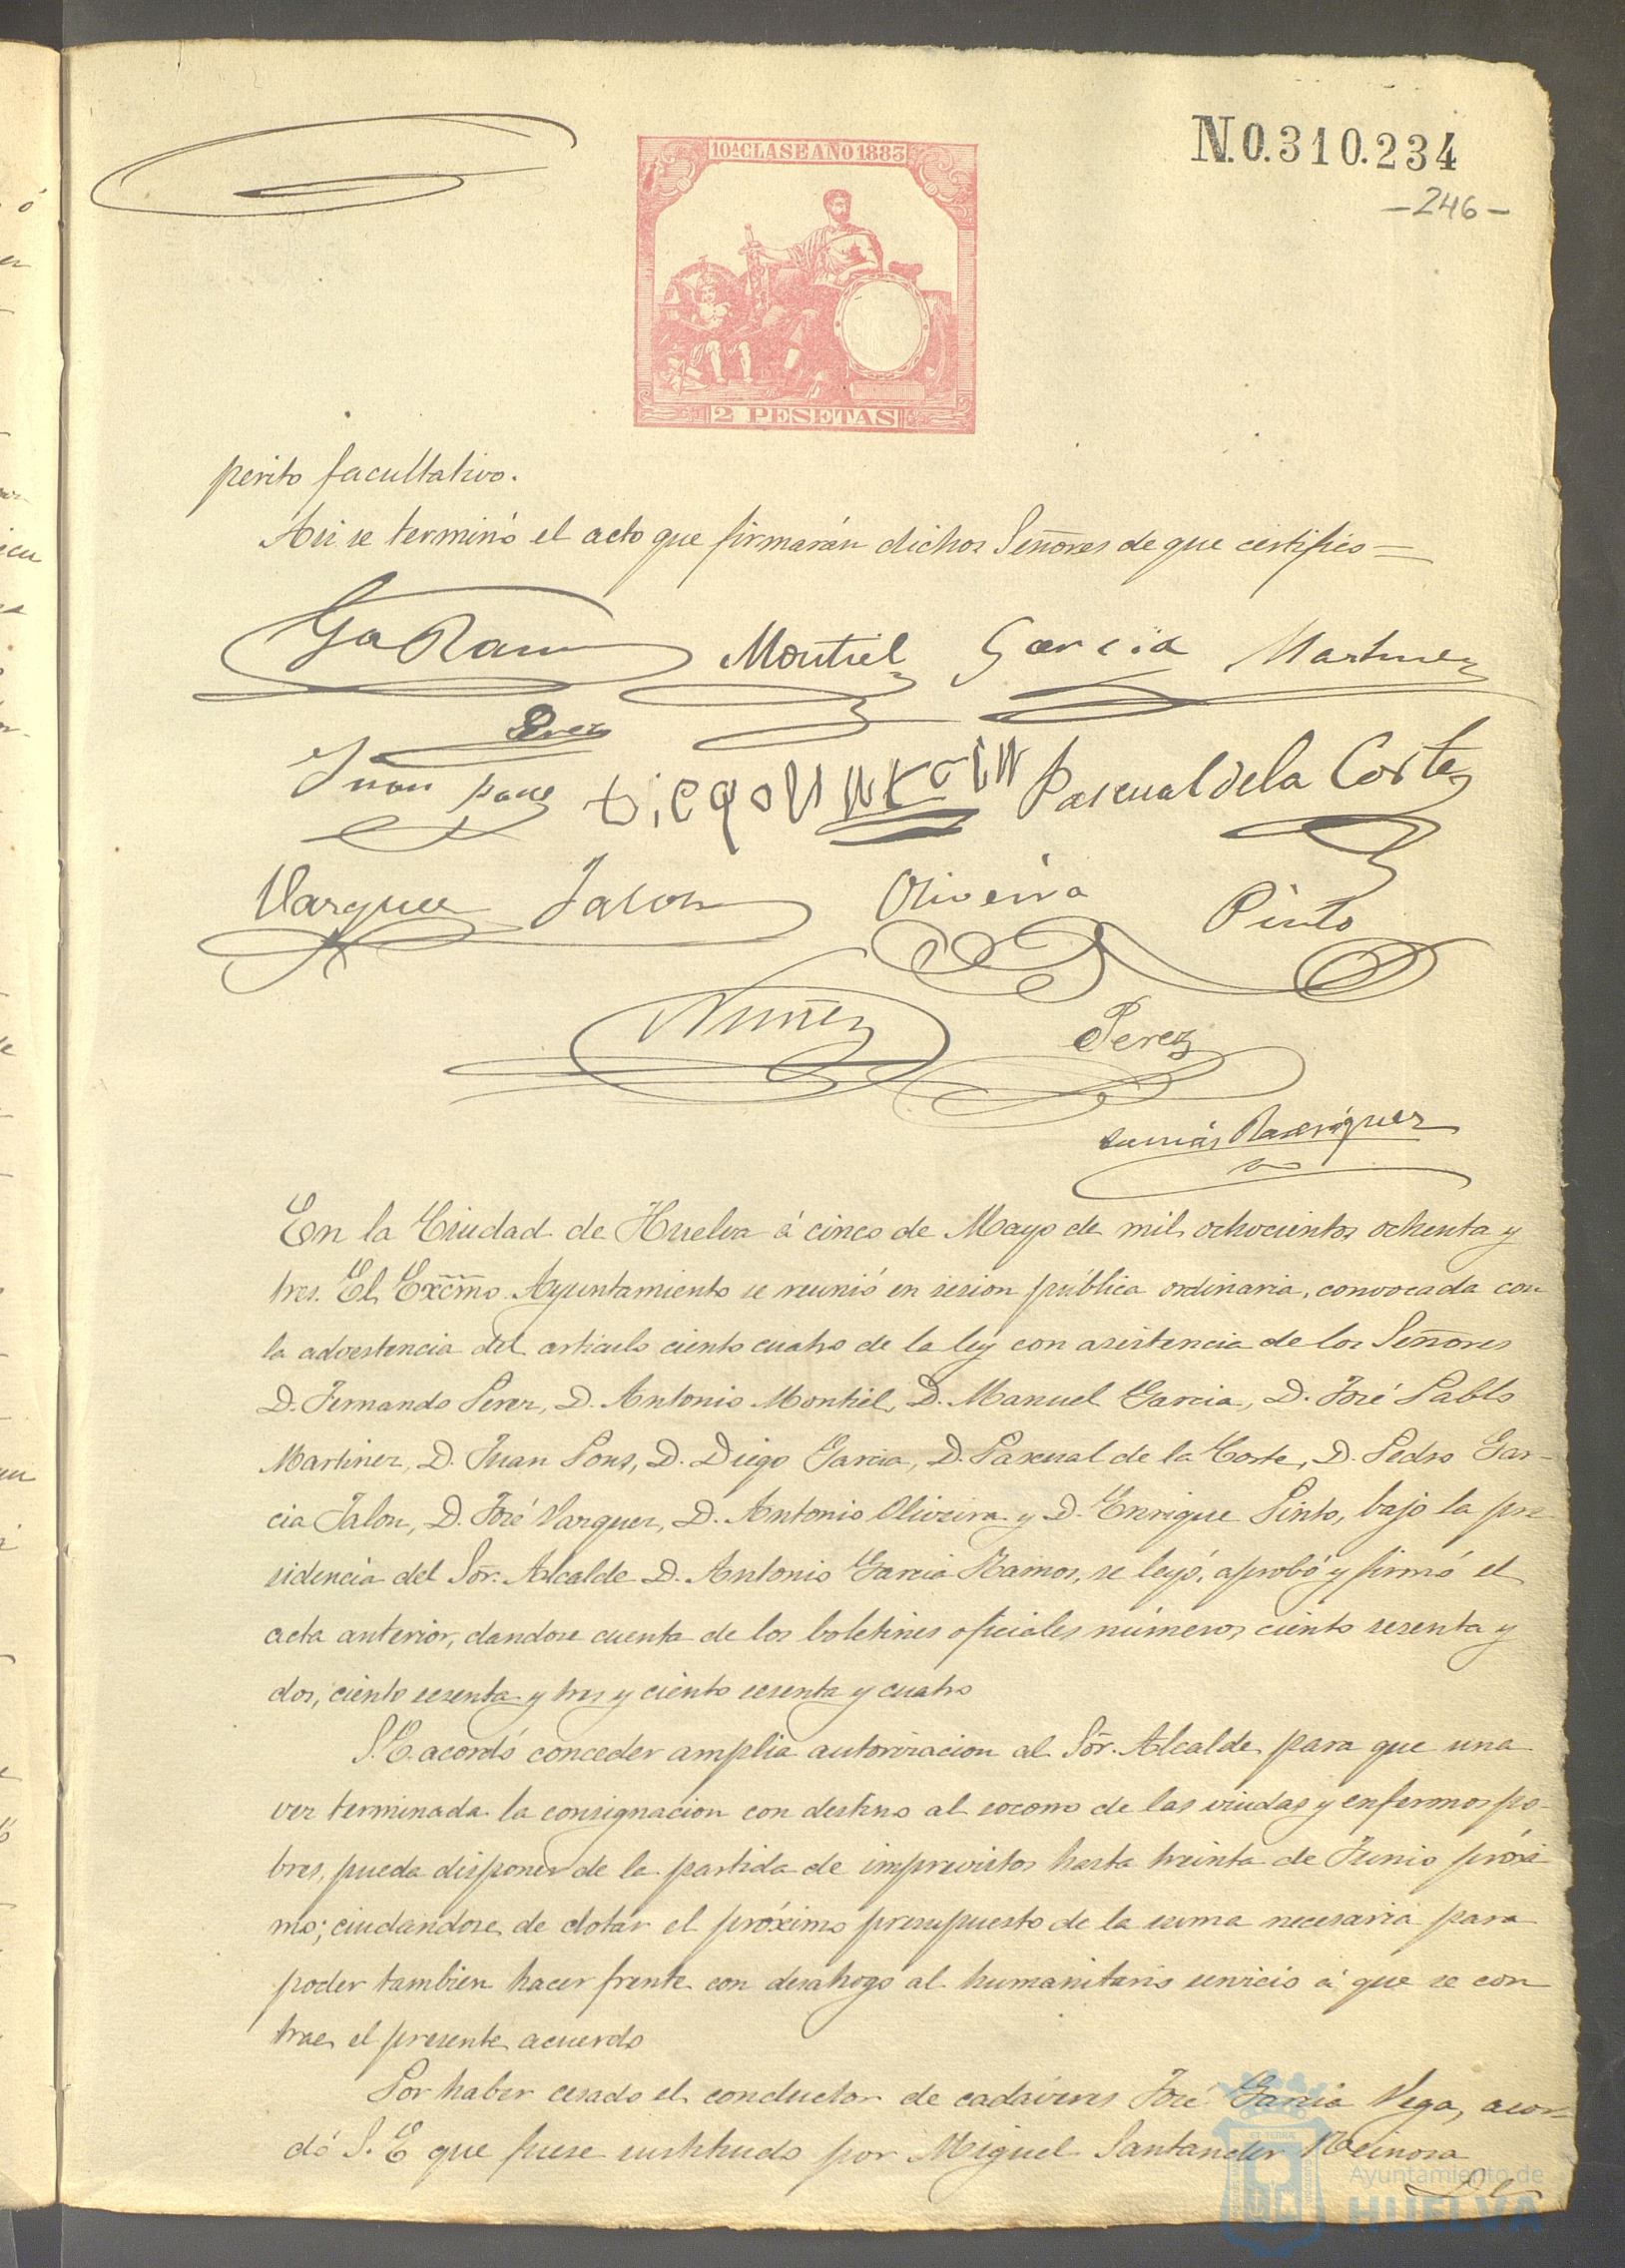 10ª CLASE AÑO 1883
N.0.310.234
-246-
2 PESETAS
perito facultativo.
Asi se terminó el acto que firmarán dichos Señores de que certifico=
Ga Ram Montiel Garcia Martinez
Perez
Juan pons Diego Pascual de la Corte
Vazquez Jalon Oliveira Pinto
Nuñez Perez
Tomás Rodriguez
En la Ciudad de Huelva á cinco de Mayo de mil ochocientos ochenta y
tres. El Excmo. Ayuntamiento se reunió en sesion pública ordinaria, convocada con
la advertencia del articulo ciento cuatro de la ley con asistencia de los Señores
D. Fernando Perez, D. Antonio Montiel, D. Manuel Garcia, D. José Pablo
Martinez, D. Juan Pons, D. Diego Garcia, D. Pascual de la Corte, D. Pedro Gar-
cia Jalon, D. José Vazquez, D. Antonio Oliveira y D. Enrique Pinto, bajo la pre
sidencia del Sor. Alcalde D. Antonio Garcia Ramos, se leyó, aprobó y firmó el
acta anterior, dandose cuenta de los boletines oficiales números ciento sesenta y
dos, ciento sesenta y tres y ciento sesenta y cuatro
S.E. acordó conceder amplia autorizacion al Sor. Alcalde para que una
vez terminada la consignacion con destino al socorro de las viudas y enfermos po-
bres, pueda disponer de la partida de imprevistos hasta treinta de Junio próxi
mo; ciudandose de dotar el próximo presupuesto de la suma necesaria para
poder tambien hacer frente con desahogo al humanitario servicio á que se con
trae el presente acuerdo
Por haber cesado el conductor de cadáveres José Garcia Vega, acor-
dó S.E que fuese sustituido por Miguel Santander Reinosa
Ayuntamiento de
HUELVA